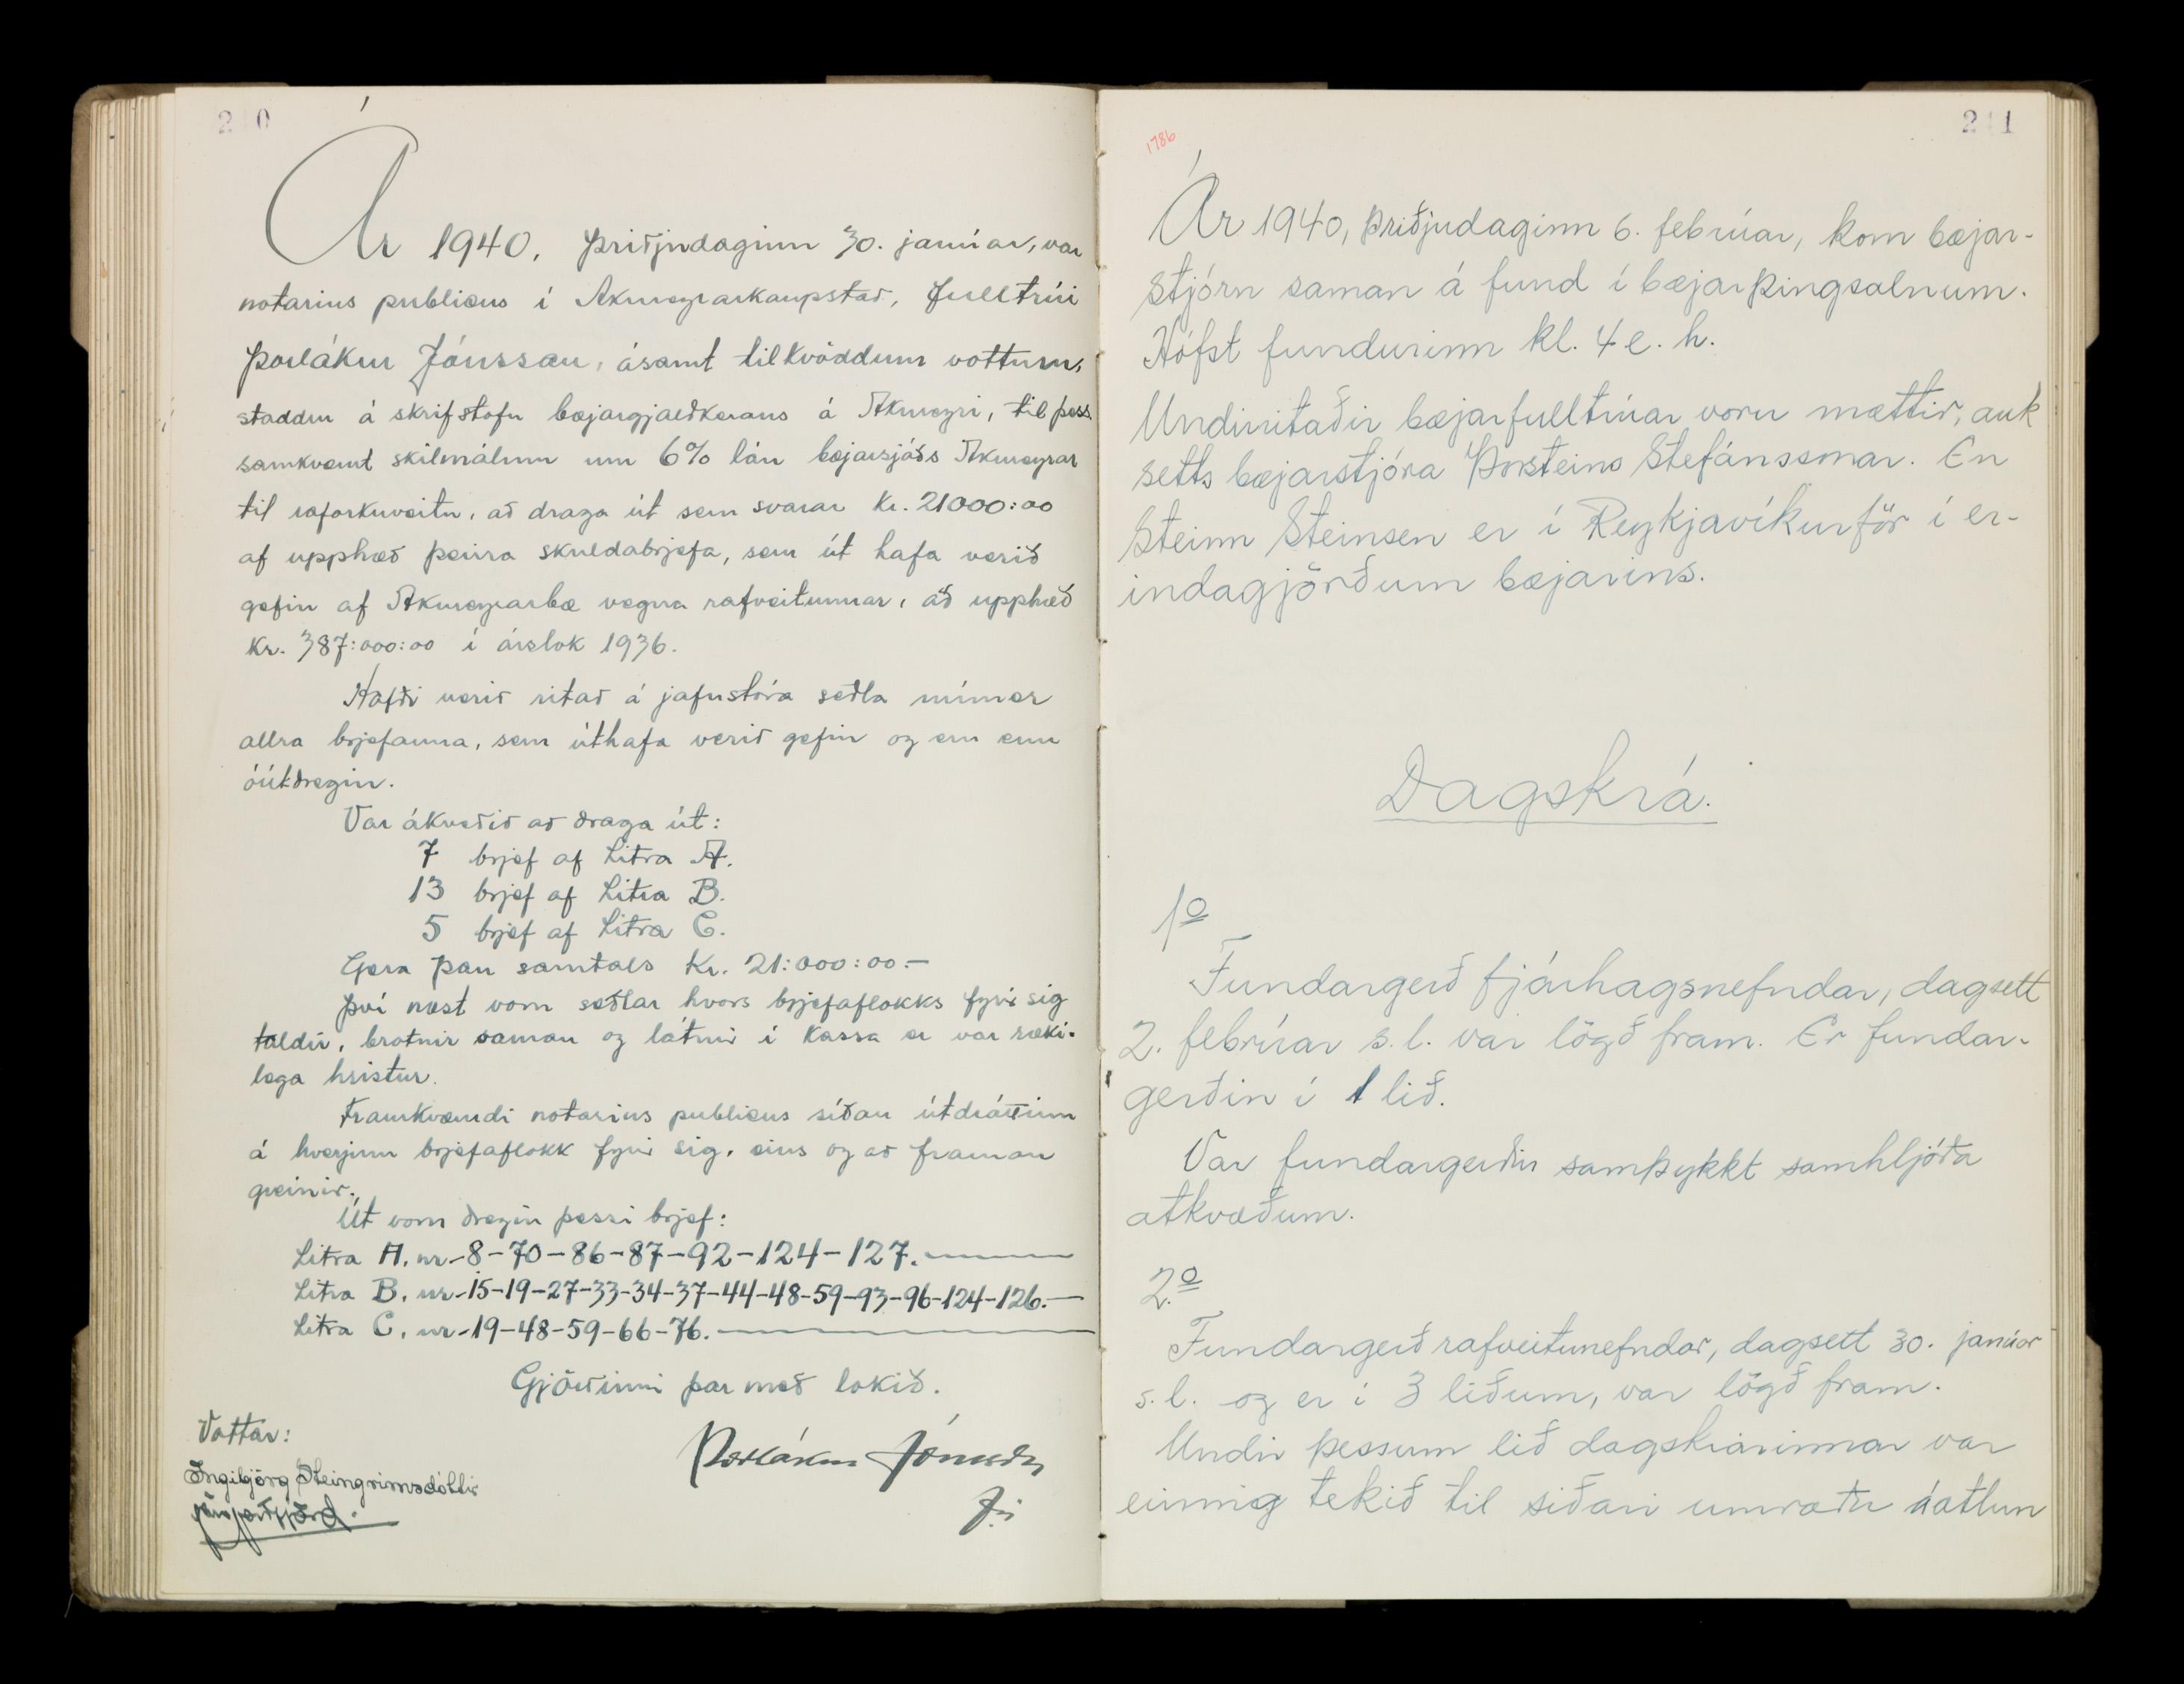 240
Ár 1940, þriðjudaginn 30. janúar, var
notarius publicus í Akureyrarkaupstað, fulltrúi
Þorlákur Jónsson, ásamt tilkvöddum vottum,
staddur á skrifstofu bæjargjaldkerans á Akureyri, til þess
samkvæmt skilmálum um 6% lán bæjarsjóðs Akureyrar
til raforkuveitu, að draga út sem svarar kr. 21000:00
af upphæð þeirra skuldabrjefa, sem út hafa verið
gefin af Akureyrarbæ vegna rafveitunnar, að upphæð
kr. 387:000:00 í árslok 1936.
Hafði verið ritað á jafnstóra seðla númer
allra brjefanna, sem úthafa verið gefin og eru enn
óútdregin.
Var ákveðið að draga út:
7 brjef af Litra A.
13 brjef af Litra B.
5 brjef af Litra C.
Gera þau samtals kr. 21:000:00.—
Því næst vom seðlar hvors brjefaflokks fyrir sig
taldir, brotnir saman og látnir í kassa er var ræki-
lega hristur.
Framkvæmdi notarius publicus síðan útdráttinn
á hverjum brjefaflokk fyrir sig, eins og að framan
greinir.
Út vom dregin þessi brjef:
Litra A. nr-8-70-86-87-92-124-127.—
Litra B. nr-15-19-27-33-34-37-44-48-59-93-96-124-126.—
Litra C. nr-19-48-59-66-76.—
Gjörðinni þar með lokið.
Vottar:
Þorlákur Jónsson
Ingibjörg Steingrímsdóttir
ftr
241
1786
Ár 1940, þriðjudaginn 6. febrúar, kom bæjar-
stjórn saman á fund í bæjarþingsalnum.
Hófst fundurinn kl. 4 e. h.
Undirritaðir bæjarfulltrúar voru mættir, auk
setts bæjarstjóra Þorsteins Stefánssonar. En
Steinn Steinsen er í Reykjavíkurför í er-
indagjörðum bæjarins.
Dagskrá.
1º
Fundargerð fjárhagsnefndar, dagsett
2. febrúar s.l. var lögð fram. Er fundar-
gerðin í 1 lið.
Var fundargerðin samþykkt samhljóða
atkvæðum.
2.º
Fundargerð rafveitunefndar, dagsett 30. janúar
s.l. og er í 3 liðum, var lögð fram.
Undir þessum lið dagskrárinnar var
einnig tekið til síðari umræðu áætlun